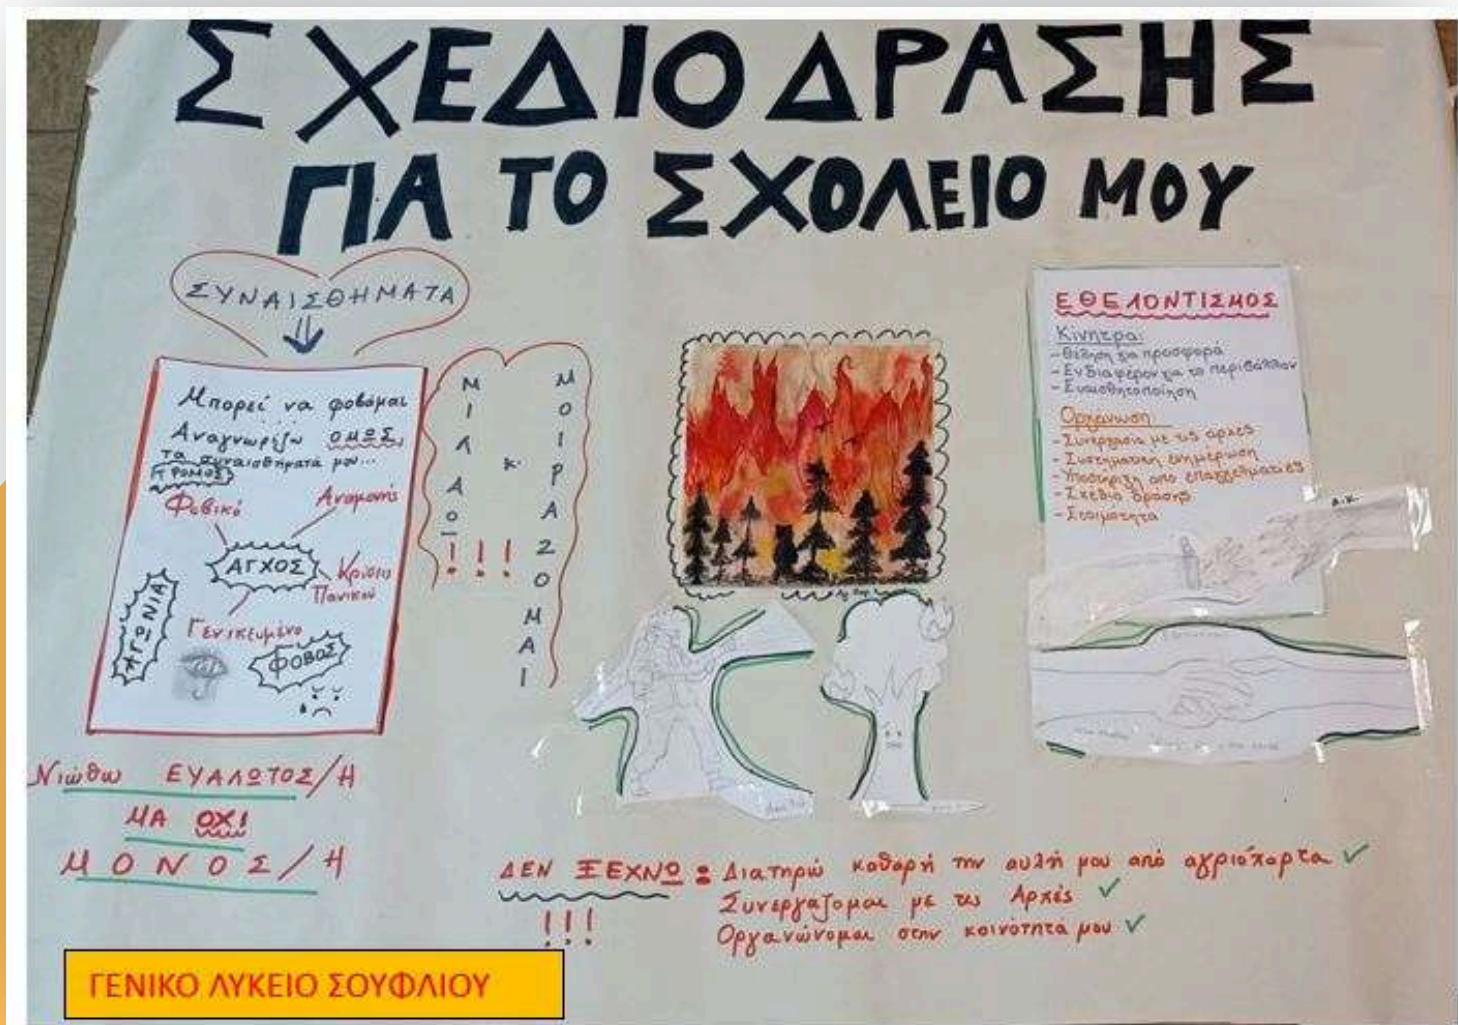 ΣΧΕΔΙΟ ΔΡΑΣΗΣ
ΓΙΑ ΤΟ ΣΧΟΛΕΙΟ ΜΟΥ
ΣΥΝΑΙΣΘΗΜΑΤΑ
Μπορεί να φοβάμαι
Αναγνωρίζω ΟΜΩΣ
τα συναισθήματά μου...
ΤΡΟΜΟΣ
Φοβικό
Αναμονής
ΑΓΧΟΣ
Κρίσεις
Πανικού
ΑΓΩΝΙΑ
Γενικευμένο
ΦΟΒΟΣ
ΜΙΛΑΩ
κ.
ΜΟΙΡΑΖΟΜΑΙ
!!!
Νιώθω ΕΥΑΛΩΤΟΣ/Η
ΜΑ ΟΧΙ
ΜΟΝΟΣ/Η
ΕΘΕΛΟΝΤΙΣΜΟΣ
Κίνητρα:
- Θέληση για προσφορά
- Ενδιαφέρον για το περιβάλλον
- Ευαισθητοποίηση
Οργάνωση:
- Συνεργασία με τις αρχές
- Συστηματική ενημέρωση
- Υποστήριξη από επαγγελματίες
- Σχέδιο δράσης
- Ετοιμότητα
Α.Κ.
ΔΕΝ ΞΕΧΝΩ: Διατηρώ καθαρή την αυλή μου από αγριόχορτα ✓
Συνεργάζομαι με τις Αρχές ✓
!!! Οργανώνομαι στην κοινότητά μου ✓
ΓΕΝΙΚΟ ΛΥΚΕΙΟ ΣΟΥΦΛΙΟΥ